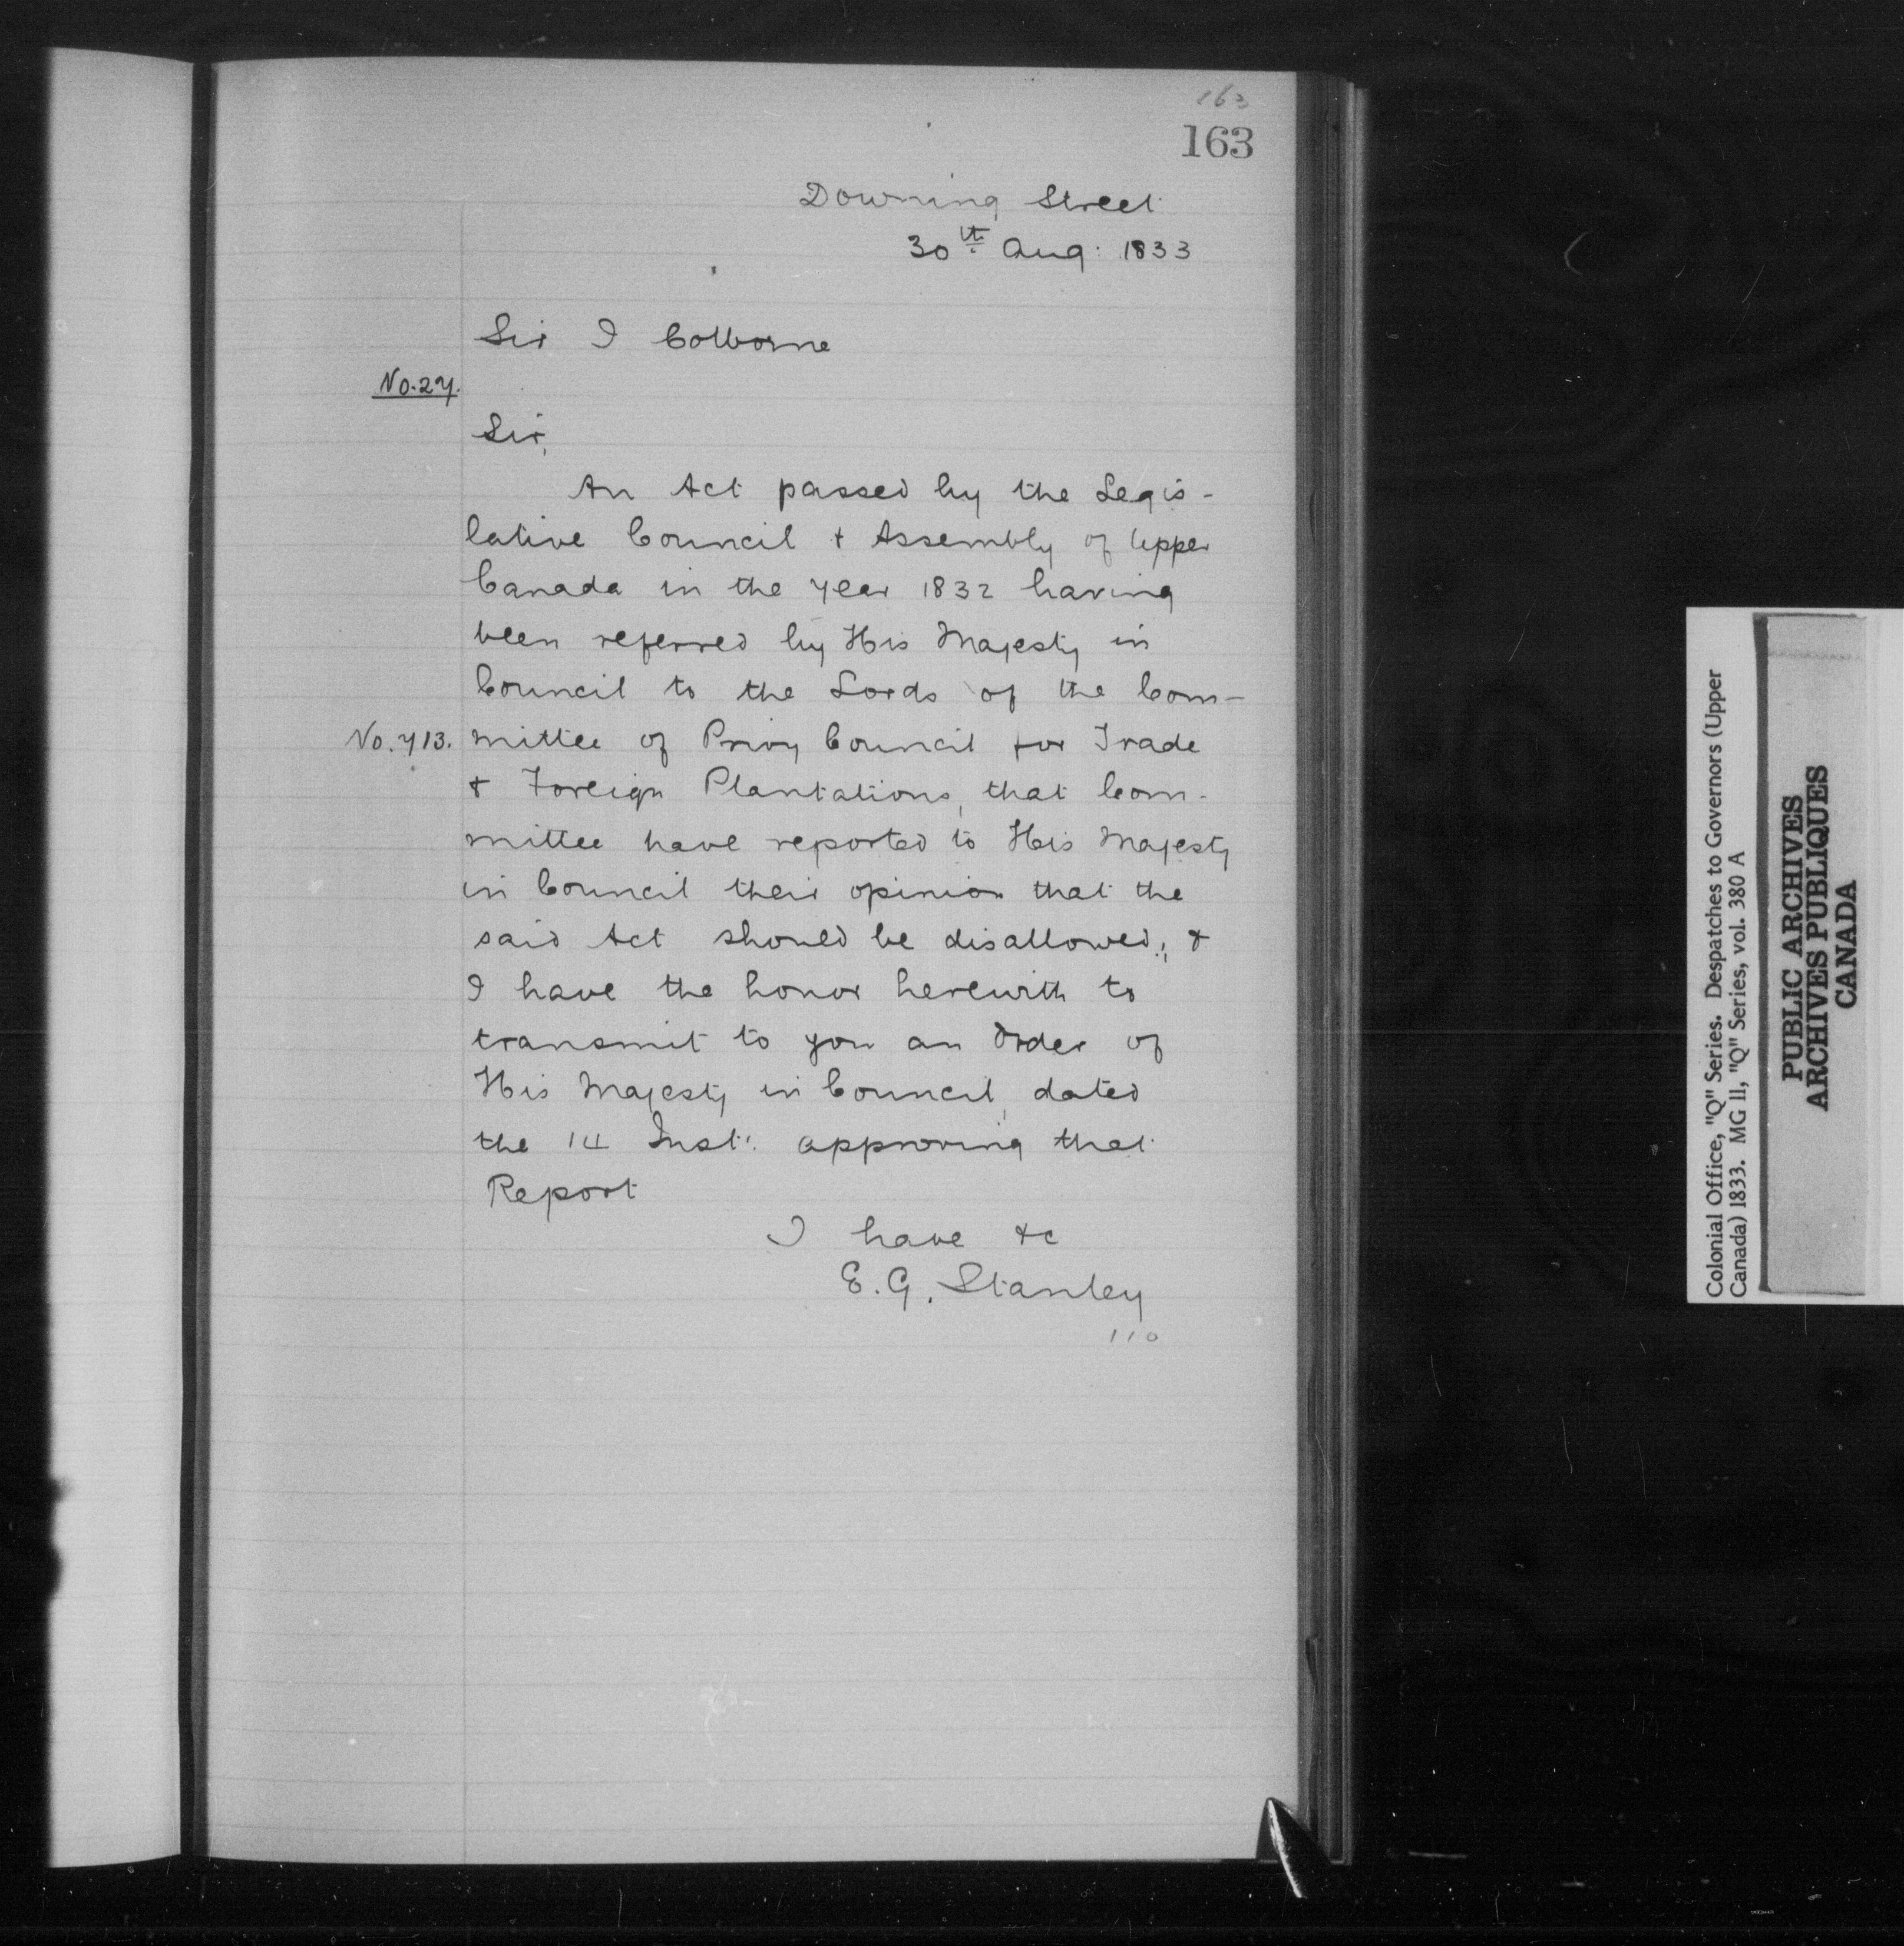 163
163
Downing Street
30th Aug: 1833
Sir J Colborne
No. 27.
Sir,
An Act passed by the Legis-
lative Council & Assembly of Upper
Canada in the year 1832 having
been referred by His Majesty in
Council to the Lords of the Com-
No. 713. mittee of Privy Council for Trade
& Foreign Plantations, that Com-
mittee have reported to His Majesty
in Council their opinion that the
said Act should be disallowed; &
I have the honor herewith to
transmit to you an Order of
His Majesty in Council, dated
the 14 Inst: approving that
Report
I have &c
E. G. Stanley
110
Colonial Office, "Q" Series. Despatches to Governors (Upper
Canada) 1833. MG 11, "Q" Series, vol. 380 A
PUBLIC ARCHIVES
ARCHIVES PUBLIQUES
CANADA